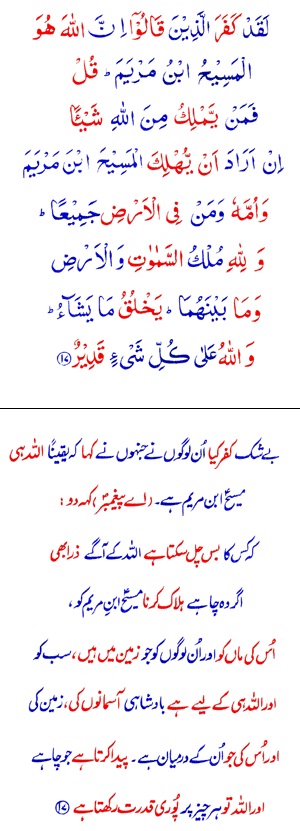 لَقَدْ كَفَرَ الَّذِيْنَ قَالُوْٓا اِنَّ اللّٰهَ هُوَ
الْمَسِيْحُ ابْنُ مَرْيَمَ ؕ قُلْ
فَمَنْ يَّمْلِكُ مِنَ اللّٰهِ شَيْـًٔا
اِنْ اَرَادَ اَنْ يُّهْلِكَ الْمَسِيْحَ ابْنَ مَرْيَمَ
وَاُمَّهٗ وَمَنْ فِى الْاَرْضِ جَمِيْعًا ؕ
وَ لِلّٰهِ مُلْكُ السَّمٰوٰتِ وَ الْاَرْضِ
وَمَا بَيْنَهُمَا ؕ يَخْلُقُ مَا يَشَآءُ ؕ
وَ اللّٰهُ عَلٰى كُلِّ شَىْءٍ قَدِيْرٌ ﴿۱۷﴾
بے شک کفر کیا اُن لوگوں نے جنہوں نے کہا کہ یقیناً اللہ ہی
مسیحؑ ابن مریم ہے۔ (اے پیغمبرؐ) کہہ دو :
کہ کس کا بس چل سکتا ہے اللہ کے آگے ذرا بھی
اگر وہ چاہے ہلاک کرنا مسیحؑ ابن مریم کو،
اُس کی ماں کو اور اُن لوگوں کو جو زمین میں ہیں، سب کو
اور اللہ ہی کے لیے ہے بادشاہی آسمانوں کی، زمین کی
اور اُس کی جو اُن کے درمیان ہے۔ پیدا کرتا ہے جو چاہے
اور اللہ تو ہر چیز پر پُوری قدرت رکھتا ہے ﴿۱۷﴾